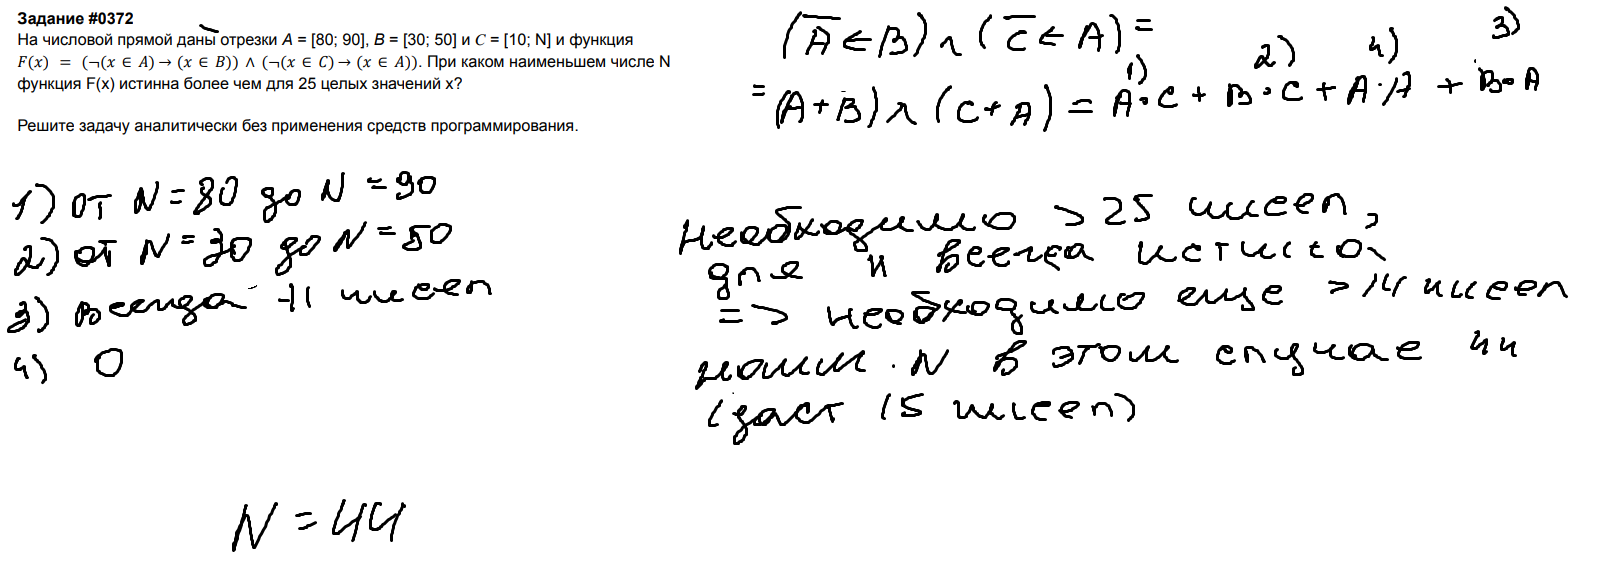 Задание #0372
На числовой прямой даны отрезки A = [80; 90], B = [30; 50] и C = [10; N] и функция
F(x) = (¬(x ∈ A) → (x ∈ B)) ∧ (¬(x ∈ C) → (x ∈ A)). При каком наименьшем числе N
функция F(x) истинна более чем для 25 целых значений x?
Решите задачу аналитически без применения средств программирования.
(A̅ ∈ B) ∧ (C̅ ∈ A) =
1) 2) 4) 3)
= (A + B) ∧ (C + A) = A·C + B·C + A·A + B·A
1) от N = 80 до N = 90
2) от N = 30 до N = 50
3) всегда 11 чисел
4) 0
Необходимо > 25 чисел,
для и всегда истино
=> необходимо еще > 14 чисел
наим. N в этом случае 44
(даст 15 чисел)
N = 44